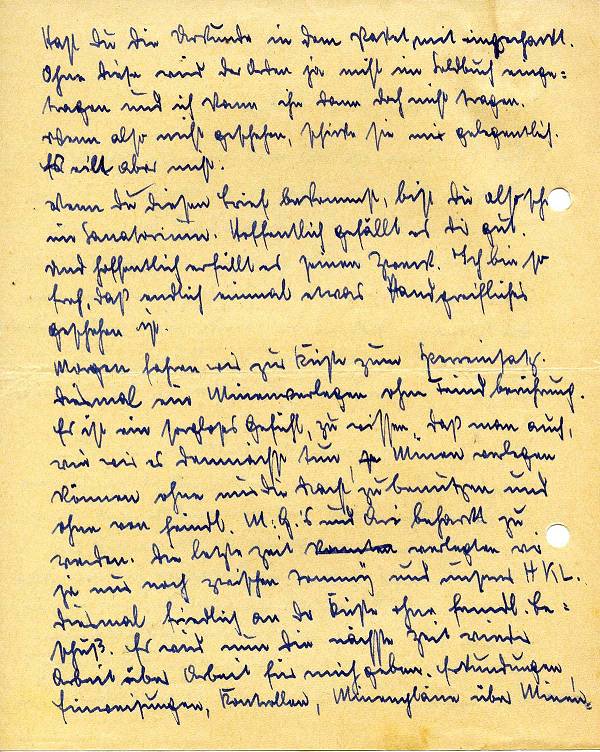 Hast Du die Urkunde in dem Paket mit eingepackt.
Ohne diese wird der Orden ja nicht im Soldbuch einge=
tragen und ich kann ihn dann doch nicht tragen.
Wenn also nicht geschehen, schicke sie mir gelegentlich.
Es eilt aber nicht.
Wenn Du diesen Brief bekommst, bist Du also scho
im Sanatorium. Hoffentlich gefällt es Dir gut.
Und hoffentlich erfüllt es seinen Zweck. Ich bin so
froh, daß endlich einmal etwas Handgreifliches
geschehen ist.
Morgen fahren wir zur Küste zum Sperreinsatz.
Diesmal ein Minenverlegen ohne Feindberührung.
Es ist ein sorgloses Gefühl, zu wissen, daß man auch,
wie wir es demnächst tun, Minen verlegen
können ohne nur die Nacht zu benutzen und
ohne von feindl. M.G.'s und Ari beharkt zu
werden. Die letzte Zeit konnten verlegten wir
ja nur noch zwischen Tommy und unserer HKL.
Diesmal friedlich an der Küste ohne feindl. Be=
schuß. Es wird nun die nächste Zeit wieder
Arbeit über Arbeit für mich geben. Erkundungen,
Einweisungen, Kontrollen, Minenpläne über Minen=